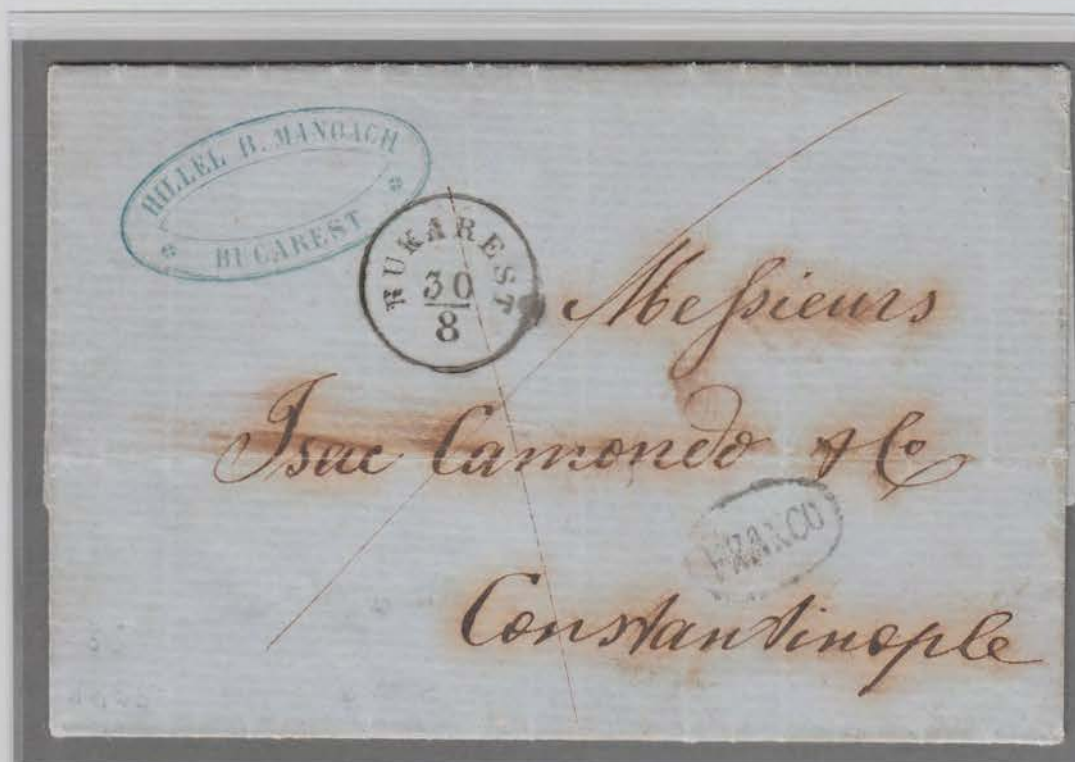 HILLEL B. MANOACH
BUCAREST
BUKAREST
30
8
Messieurs
Isac Camondo & Co
FRANCO
Constantinople